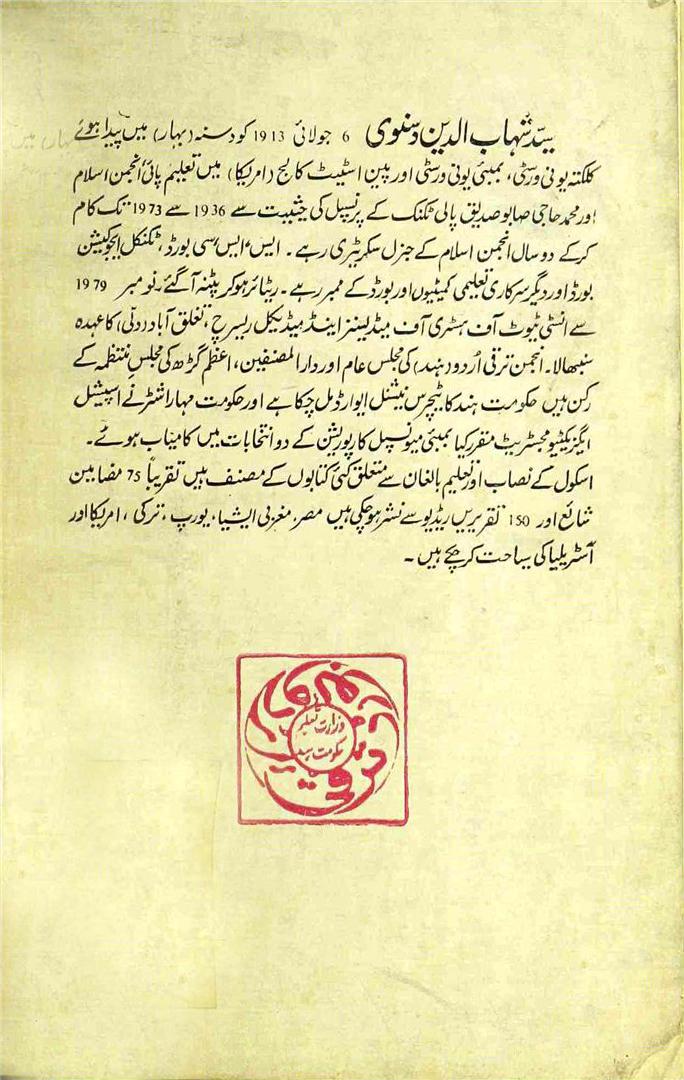 سیّد شہاب الدین دسنوی 6 جولائی 1913 کو دسنہ (بہار) میں پیدا ہوئے
کلکتہ یونی ورسٹی، بمبئی یونی ورسٹی اور پین اسٹیٹ کالج (امریکا) میں تعلیم پائی انجمن اسلام
اور محمد حاجی صابو صدیق پالی ٹکنک کے پرنسپل کی حیثیت سے 1936 سے 1973 تک کام
کرکے دو سال انجمن اسلام کے جنرل سکریٹری رہے۔ ایس، ایس، سی بورڈ، ٹکنکل ایجوکیشن
بورڈ اور دیگر سرکاری تعلیمی کمیٹیوں اور بورڈ کے ممبر رہے۔ ریٹائر ہوکر پٹنہ آگئے۔ نومبر 1979
سے انسٹی ٹیوٹ آف ہسٹری آف میڈیسنز اینڈ میڈیکل ریسرچ، تغلق آباد (دلّی) کا عہدہ
سنبھالا۔ انجمن ترقی اُردو (ہند) کی مجلس عام اور دار المصنفین، اعظم گڑھ کی مجلسِ منتظمہ کے
رکن ہیں حکومت ہند کا ٹیچرس نیشنل ایوارڈ مل چکا ہے اور حکومت مہاراشٹر نے اسپیشل
ایگزیکٹیو مجسٹریٹ مقرر کیا بمبئی میونسپل کارپوریشن کے دو انتخابات میں کامیاب ہوئے۔
اسکول کے نصاب اور تعلیم بالغان سے متعلق کئی کتابوں کے مصنف ہیں تقریباً 75 مضامین
شائع اور 150 تقریریں ریڈیو سے نشر ہوچکی ہیں مصر، مغربی ایشیا، یورپ، ترکی، امریکا اور
آسٹریلیا کی سیاحت کرچکے ہیں۔
وزارت تعلیم
حکومت ہند